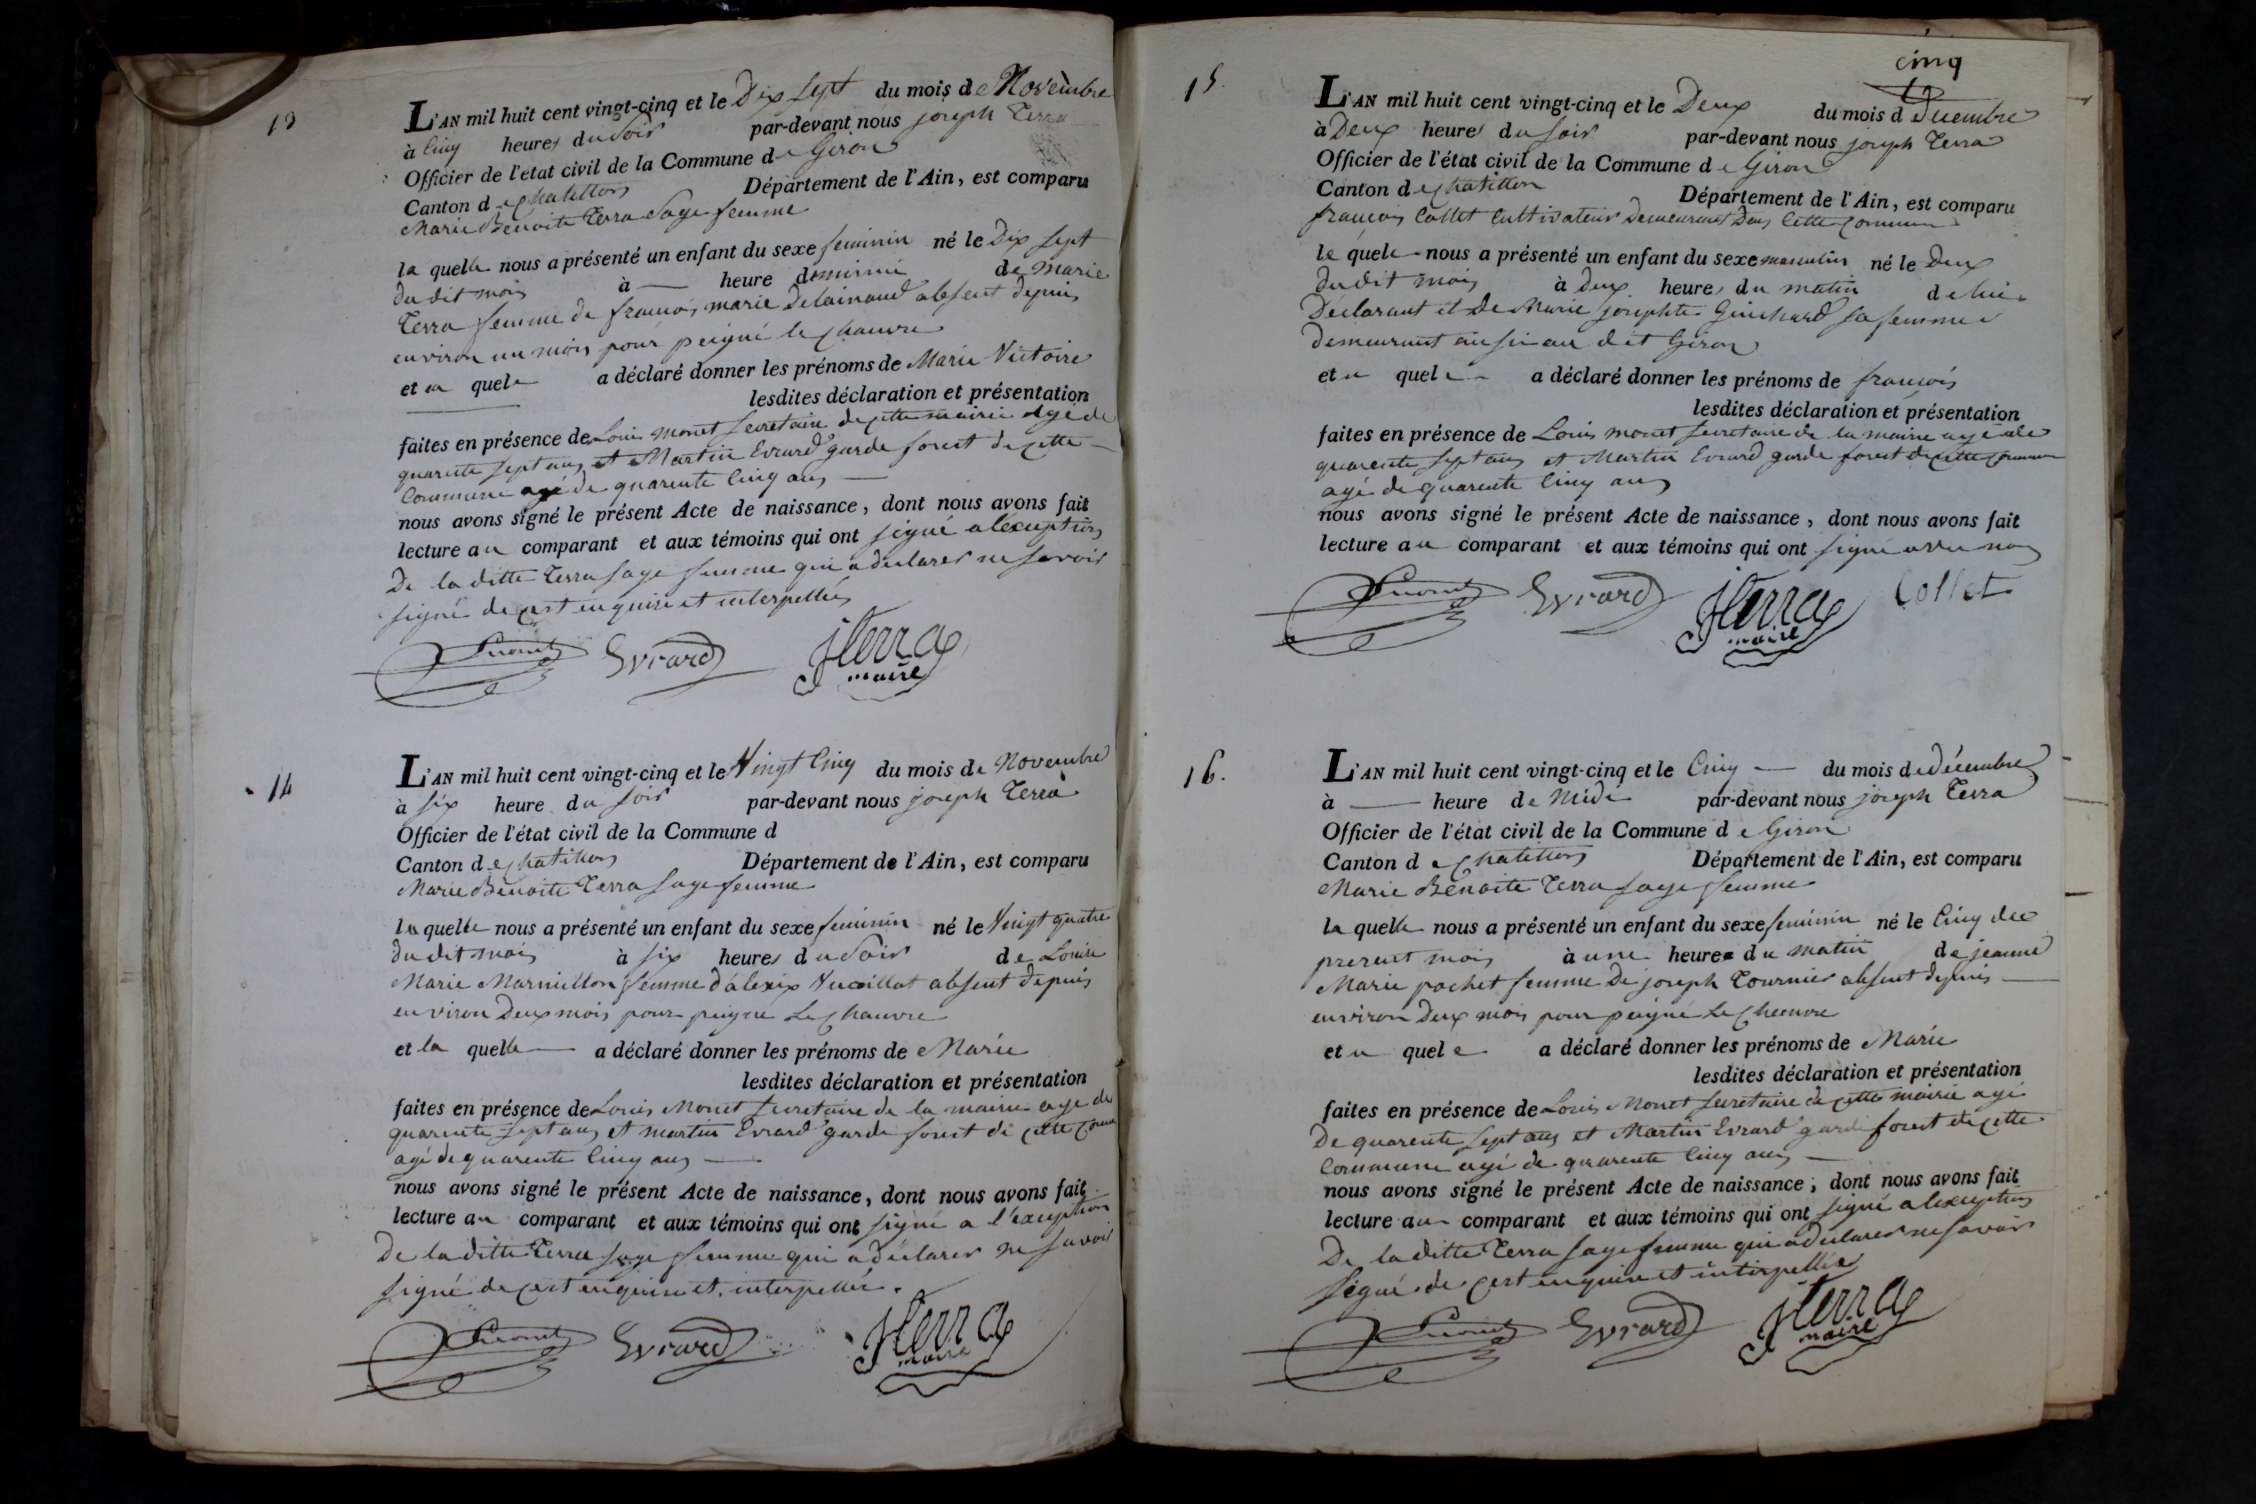 13
L'AN mil huit cent vingt-cinq et le Dix Sept du mois de Novembre
à Cinq heures du Soir par-devant nous joseph Terra
Officier de l'état civil de la Commune de Giron
Canton de chatillon Département de l'Ain, est comparu
Marie Benoite Terra Sage femme
la quelle nous a présenté un enfant du sexe feminin né le Dix Sept
du dit mois à — heure deminui de Marie
Terra femme de françois marie Delainaud absent depuis
environ un mois pour peigné le chanvre
et a quel a déclaré donner les prénoms de Marie Victoire
lesdites déclaration et présentation
faites en présence de Louis Monet Secretaire de cette mairie agé de
quarente sept ans et Martin Evrard garde forest de cette
Commune agé de quarente Cinq ans —
nous avons signé le présent Acte de naissance, dont nous avons fait
lecture au comparant et aux témoins qui ont signé a léxception
De la ditte Terra sage femme qui a déclarer ne savoir
signé de cest enquise et interpellée
Monet Evrard JTerra
maire
14
L'AN mil huit cent vingt-cinq et le Vingt Cinq du mois de Novembre
à six heure du soir par-devant nous joseph Terra
Officier de l'état civil de la Commune d
Canton de chatillon Département de l'Ain, est comparu
Marie Benoite Terra sage femme
la quelle nous a présenté un enfant du sexe feminin né le Vingt quatre
du dit mois à six heures du Soir de Louise
Marie Marmillon femme d'aléxix Vuaillat absent depuis
environ Deux mois pour peigne Le Chanvre
et la quelle — a déclaré donner les prénoms de Marie
lesdites déclaration et présentation
faites en présence de Louis Monet secretaire de la mairie age de
quarente sept ans et martin Evrard garde forest de cette
agé de quarente Cinq ans —
nous avons signé le présent Acte de naissance, dont nous avons fait
lecture au comparant et aux témoins qui ont signé a l'éxception
De la ditte Terra sage femme qui a déclarer ne savoir
signé de cest enquise et interpellée.
Monet Evrard JTerra
maire
cinq
15.
L'AN mil huit cent vingt-cinq et le Deux du mois d Decembre
à Deux heures du soir par-devant nous joseph Terra
Officier de l'état civil de la Commune de Giron
Canton de chatillon Département de l'Ain, est comparu
françois Collet Cultivateur Demeurant Dans Cette Commune
le quel nous a présenté un enfant du sexe masculin né le deux
du dit mois à deux heures du matin de lui
Déclarant et De Marie josephte Guichard sa femme
demeurant ausi au dit Giron
et a quel a déclaré donner les prénoms de françois
lesdites déclaration et présentation
faites en présence de Louis monet secretaire de la mairie agé de
quarente sept ans et Martin Evrard garde forest de cette commune
agé de quarente Cinq ans
nous avons signé le présent Acte de naissance, dont nous avons fait
lecture au comparant et aux témoins qui ont signé avec nous
Monet Evrard JTerra Collet
maire
16.
L'AN mil huit cent vingt-cinq et le Cinq — du mois de décembre
à — heure de Midi par-devant nous joseph Terra
Officier de l'état civil de la Commune de Giron
Canton de chatillon Département de l'Ain, est comparu
Marie Bénoite Terra sage femme
la quelle nous a présenté un enfant du sexe feminin né le Cinq du
present mois à une heure du matin de jeanne
Marie pochet femme De joseph Tournier absent depuis —
environ Deux mois pour peigné Le Chanvre
et a quel a déclaré donner les prénoms de Marie
lesdites déclaration et présentation
faites en présence de Louis Monet secretaire de cette mairie agé
De quarente sept ans et Martin Evrard garde forest de cette
Commune agé de quarente Cinq ans —
nous avons signé le présent Acte de naissance, dont nous avons fait
lecture au comparant et aux témoins qui ont signé a lexception
De la ditte Terra sage femme qui a déclarer ne savoir
signé de cest enquise et interpellée
Monet Evrard JTerra
maire